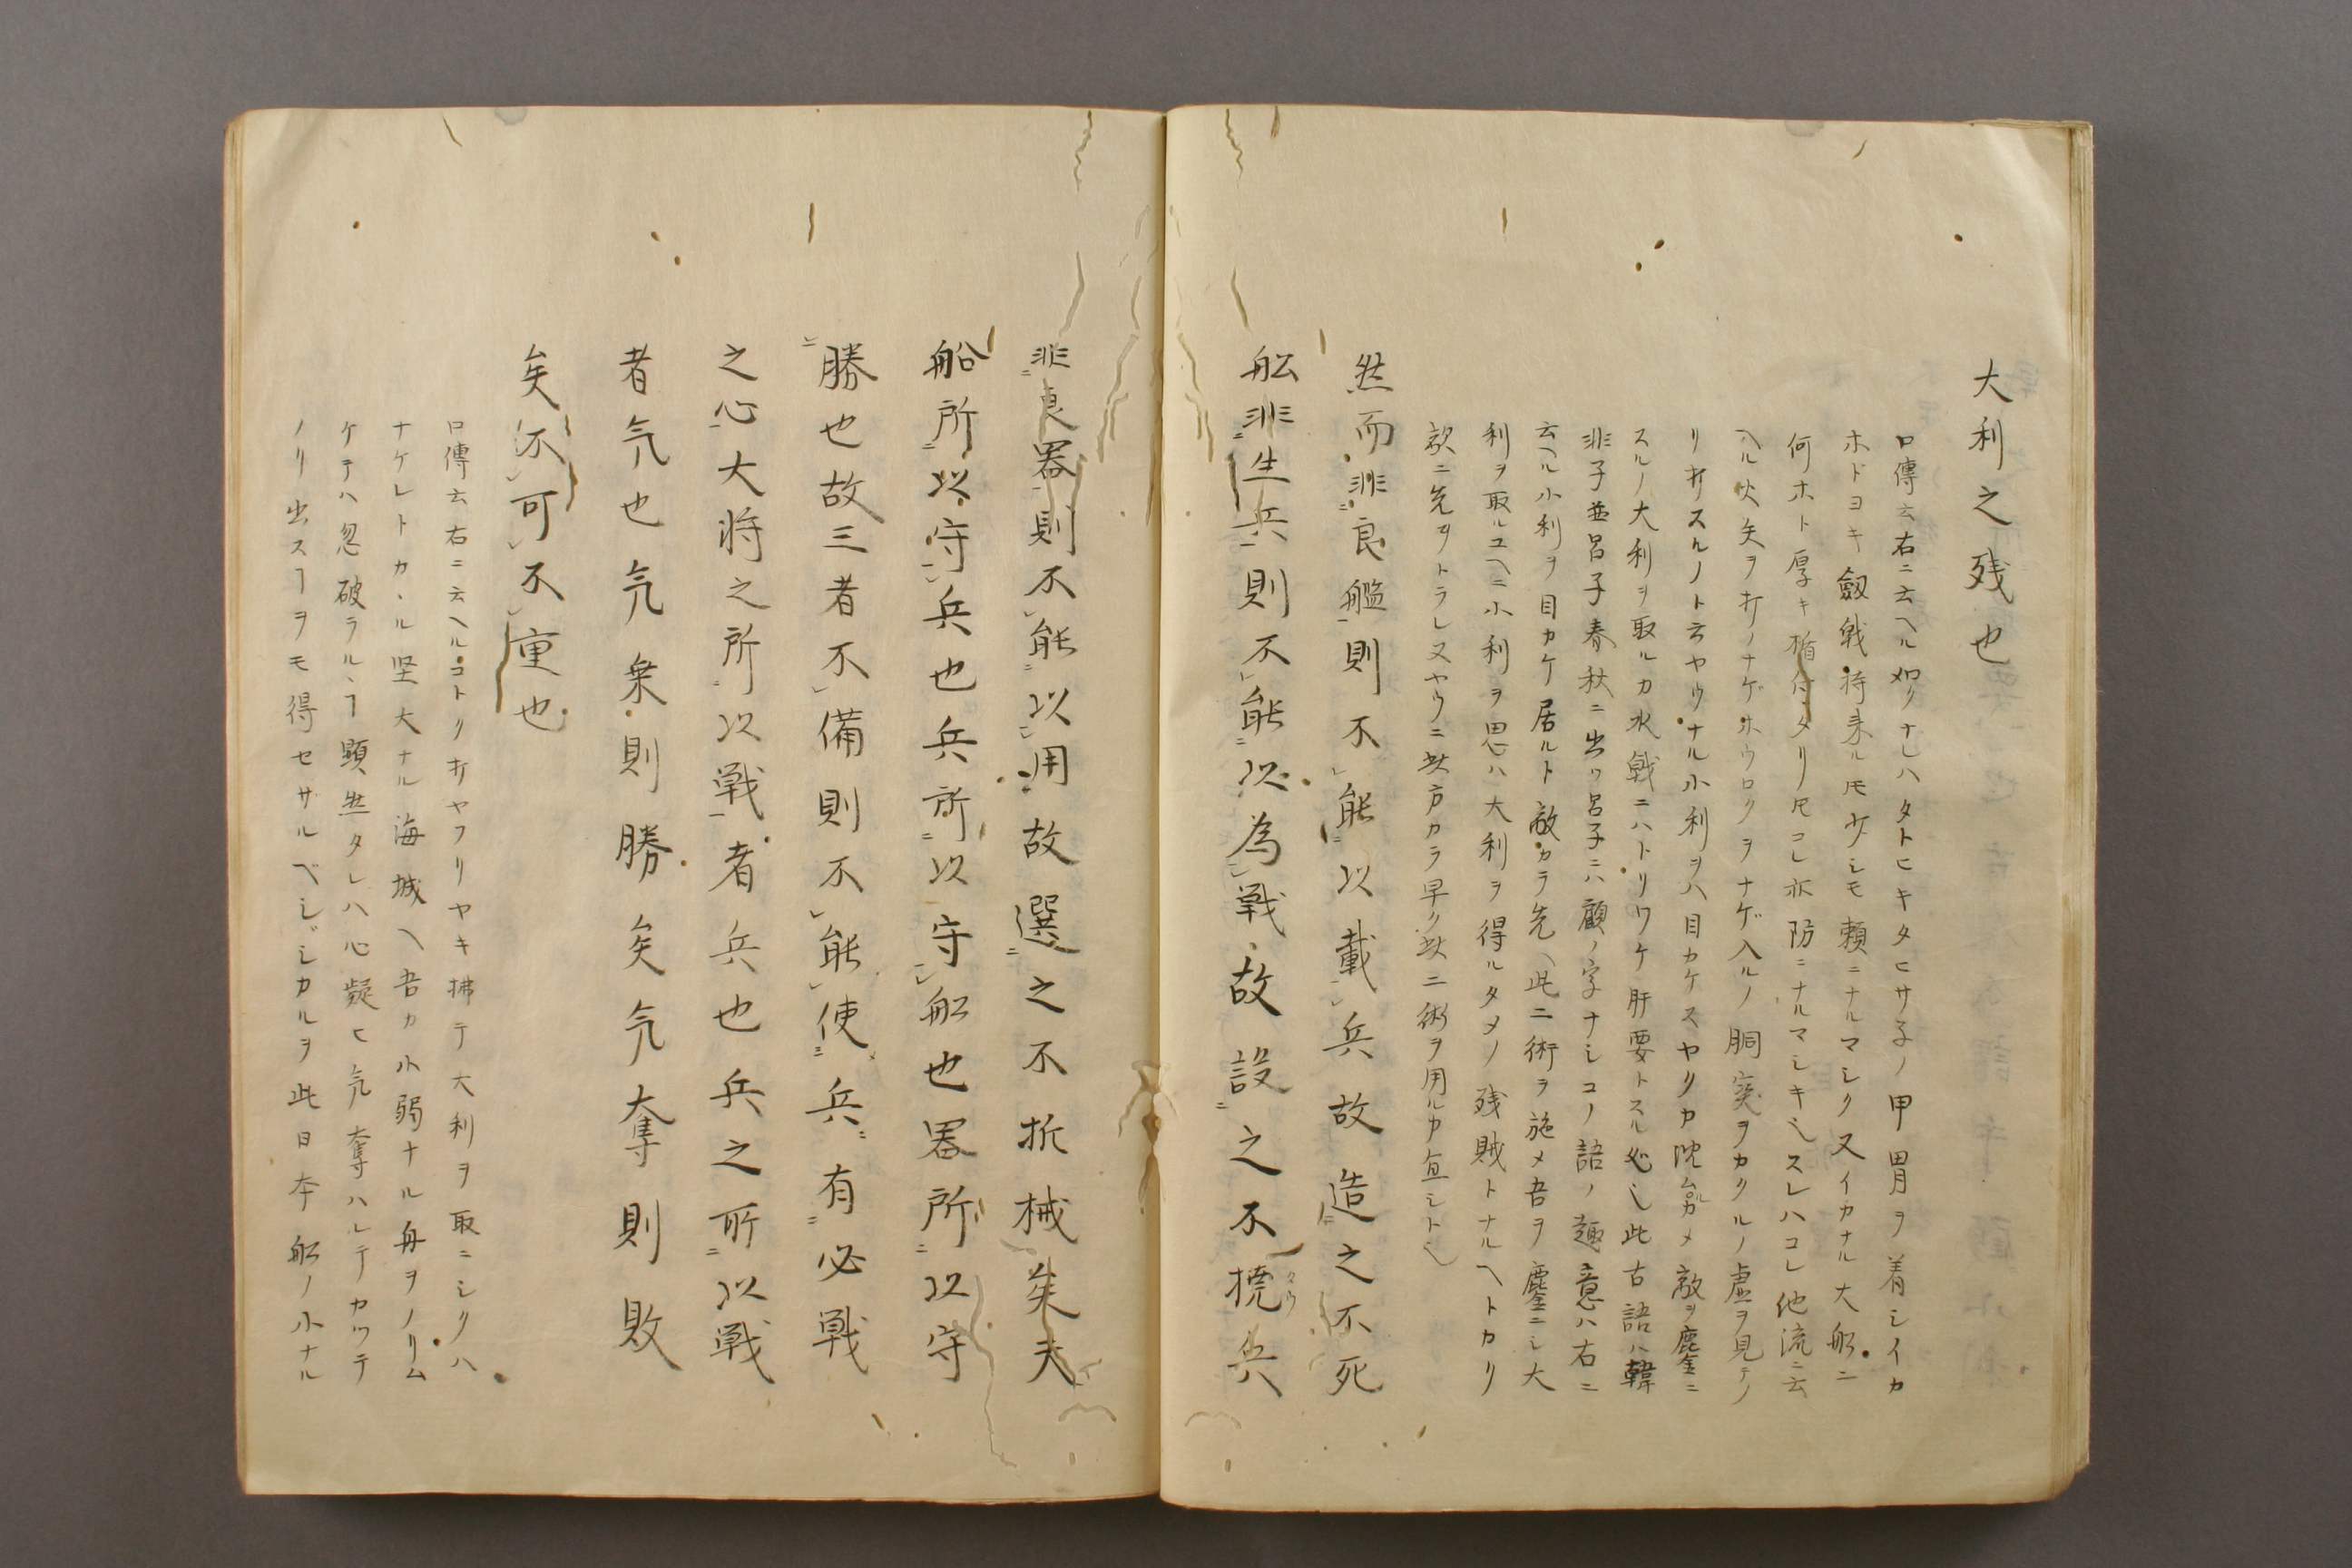 大利之残也
口傳云右ニ云ヘル如クナレハタトヒキタヒサネノ甲胃ヲ着シイカ
ホドヨキ劔戟持来ルモ少シモ頼ニナルマシク又イカナル大船ニ
何ホト厚キ楯付タリモコレ亦防ニナルマシキ也スレハコレ他流ニ云
ヘル火矢ヲ打ノナゲホウロクヲナゲ入ルノ胴突ヲカクルノ虚ヲ見テノ
リ打スルノト云ヤウナル小利ヲハ目カケスヤリカ沈メ敵ヲ鏖ニ
スルノ大利ヲ取ルカ水戦ニハトリワケ肝要トスル処也此古語ハ韓
非子並呂子春秋ニ出ツ呂子ニハ顧ノ字ナシコノ語ノ趣意ハ右ニ
云ヘル小利ヲ目カケ居ルト敵カラ先ヘ此二術ヲ施メ吾ヲ鏖ニシ大
利ヲ取ルユヘニ小利ヲ思ハ大利ヲ得ルタメノ残賊トナルヘトカク
敵ニ先ヲトラレヌヤウニ此方カラ早ク此二術ヲ用ルカ宜シト也
然而非良艦則不能以載兵故造之不死
舩非生兵則不能以為戦故設之不撓兵
非良器則不能以用故選之不折械矣夫
船所以守兵也兵所以守舩也器所以守
勝也故三者不備則不能使兵有必戦
之心大将之所以戦者兵也兵之所以戦
者気也気乗則勝矣気奪則敗
矣不可不重也
口傳云右ニ云ヘルコトク打ヤフリヤキ拂テ大利ヲ取ニシクハ
ナケレトカヽル堅大ナル海城ヘ吾カ小弱ナル舟ヲノリム
ケテハ忽破ラルヽヿ顕然タレハ心疑ヒ気奪ハレテカツテ
ノリ出スヿヲモ得セサルベシシカルヲ此日本舩ノ小ナル